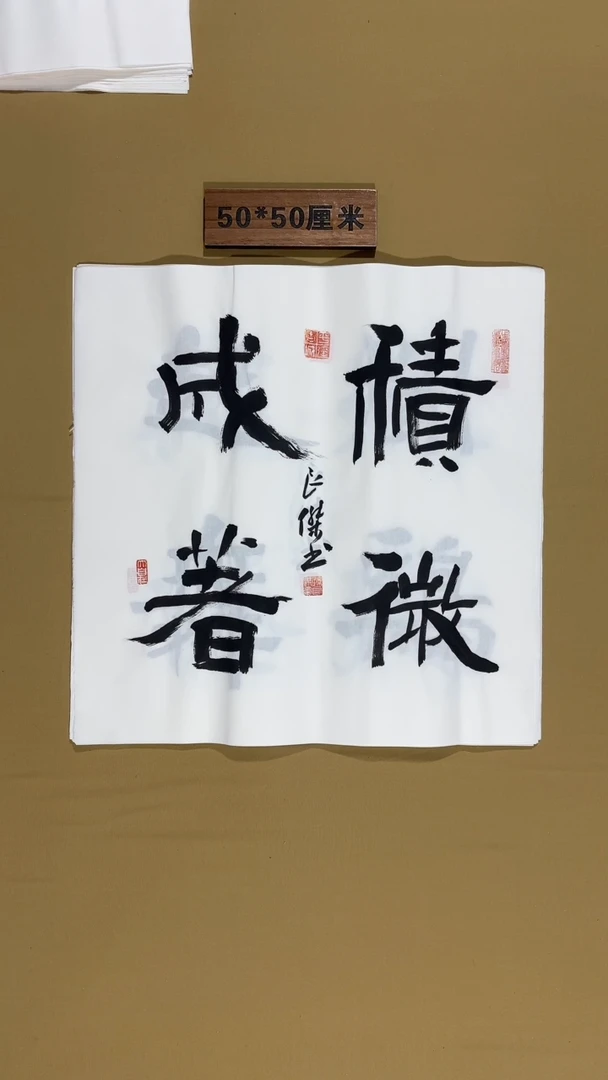 50*50厘米
積微
成著
傑书